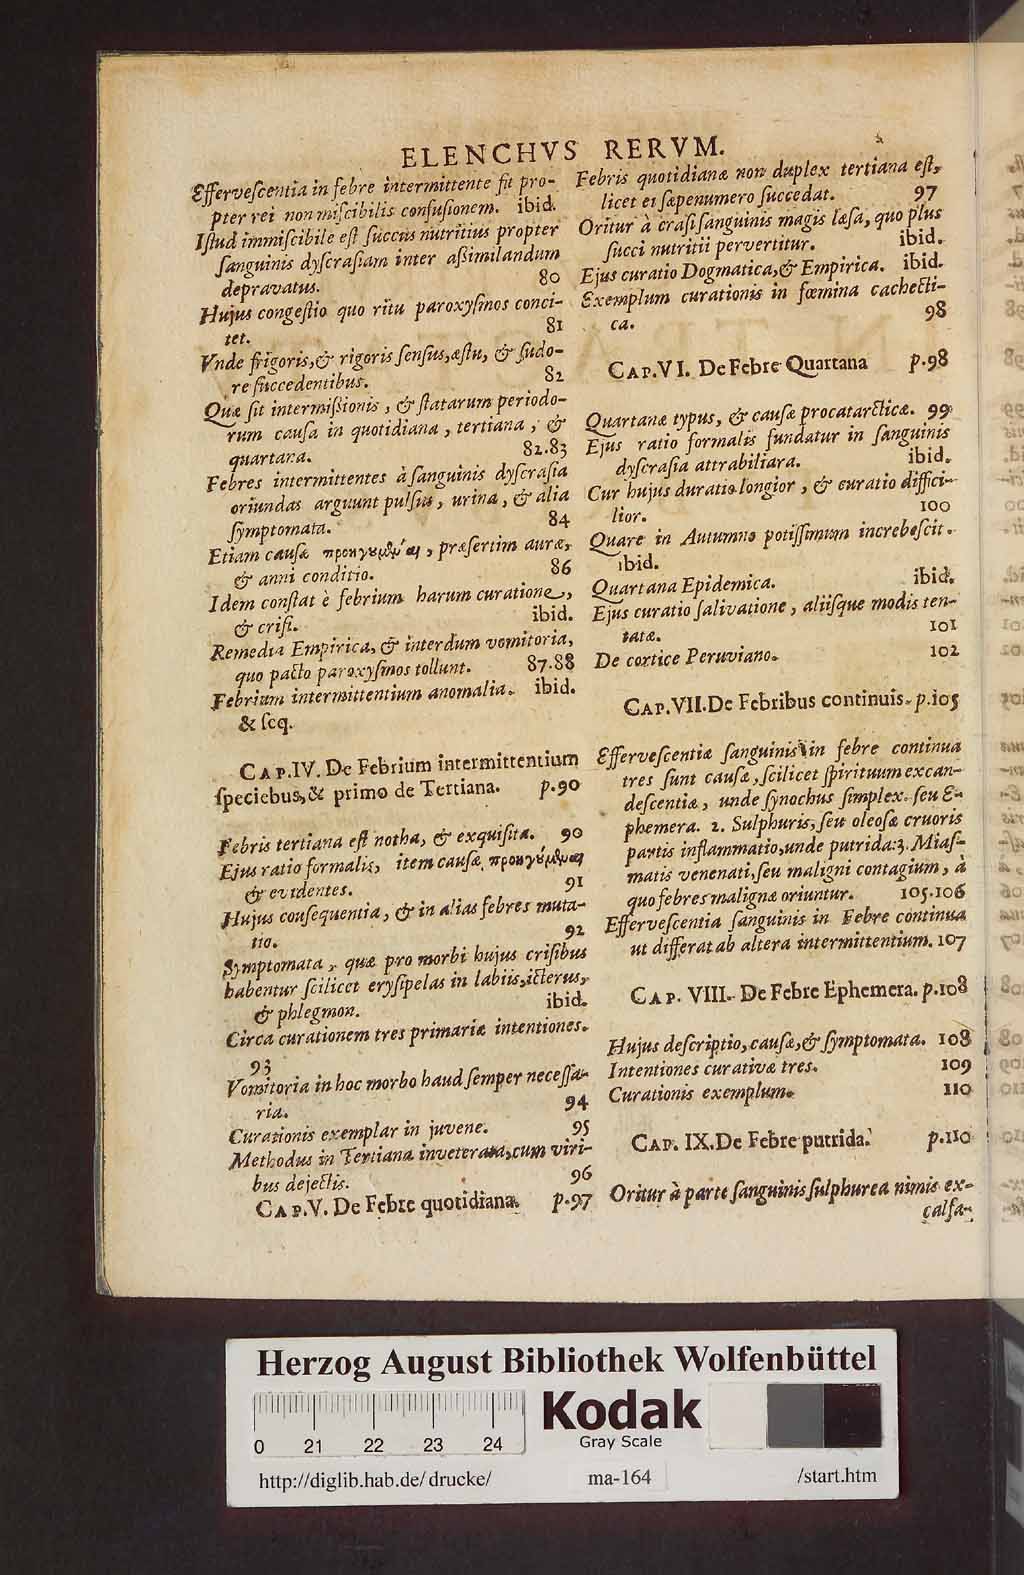 ELENCHVS RERVM.
Efferveſcentia in febre intermittente fit pro-
pter rei non miſcibilis confuſionem. ibid.
Iſtud immiſcibile eſt ſuccus nutritius propter
ſanguinis dyſcraſiam inter aßimilandum
depravatus. 80
Hujus congeſtio quo ritu paroxyſmos conci-
tet. 81
Vnde frigoris, & rigoris ſenſus, æſtu, & ſudo-
re ſuccedentibus. 82
Quæ ſit intermißionis, & ſtatarum periodo-
rum cauſa in quotidiana, tertiana, &
quartana. 82.83
Febres intermittentes à ſanguinis dyſcraſia
oriundas arguunt pulſus, urina, & alia
ſymptomata. 84
Etiam cauſæ προηγουμέναι, præſertim auræ,
& anni conditio. 86
Idem conſtat è febrium harum curatione,
& criſi. ibid.
Remedia Empirica, & interdum vomitoria,
quo pacto paroxyſmos tollunt. 87.88
Febrium intermittentium anomalia. ibid.
& ſeq.
CAP.IV. De Febrium intermittentium
ſpeciebus, & primo de Tertiana. p.90
Febris tertiana eſt notha, & exquiſita. 90
Ejus ratio formalis, item cauſæ προηγούμεναι
& evidentes. 91
Hujus conſequentia, & in alias febres muta-
tio. 92
Symptomata, quæ pro morbi hujus criſibus
habentur ſcilicet eryſipelas in labiis, icterus,
& phlegmon. ibid.
Circa curationem tres primariæ intentiones.
93
Vomitoria in hoc morbo haud ſemper neceſſa-
ria. 94
Curationis exemplar in juvene. 95
Methodus in Tertiana inveterata, cum viri-
bus dejectis. 96
CAP.V. De Febre quotidiana. p.97
Febris quotidianæ non duplex tertiana eſt,
licet ei ſæpenumero ſuccedat. 97
Oritur à craſi ſanguinis magis læſa, quo plus
ſucci nutritii pervertitur. ibid.
Ejus curatio Dogmatica, & Empirica. ibid.
Exemplum curationis in fœmina cachecti-
ca. 98
CAP.VI. De Febre Quartana p.98
Quartanæ typus, & cauſæ procatarcticæ. 99
Ejus ratio formalis fundatur in ſanguinis
dyſcraſia attrabiliara. ibid.
Cur hujus duratio longior, & curatio diffici-
lior. 100
Quare in Autumno potiſſimum increbeſcit.
ibid.
Quartana Epidemica. ibid.
Ejus curatio ſalivatione, aliiſque modis ten-
tatæ. 101
De cortice Peruviano. 102
CAP.VII.De Febribus continuis. p.105
Effervescentiæ ſanguinis in febre continua
tres ſunt cauſæ, ſcilicet ſpirituum excan-
deſcentiæ, unde ſynochus ſimplex. ſeu E-
phemera. 2. Sulphuris, ſeu oleoſæ cruoris
partis inflammatio, unde putrida: 3. Miaſ-
matis venenati, ſeu maligni contagium, à
quo febres malignæ oriuntur. 105.106
Effervescentia ſanguinis in Febre continua
ut differat ab altera intermittentium. 107
CAP. VIII. De Febre Ephemera. p.108
Hujus deſcriptio, cauſæ, & ſymptomata. 108
Intentiones curativæ tres. 109
Curationis exemplum. 110
CAP. IX. De Febre putrida. p.110
Oritur à parte ſanguinis ſulphurea nimis ex-
calfa-
Herzog August Bibliothek Wolfenbüttel
0 21 22 23 24
Kodak
Gray Scale
http://diglib.hab.de/drucke/ ma-164 /start.htm